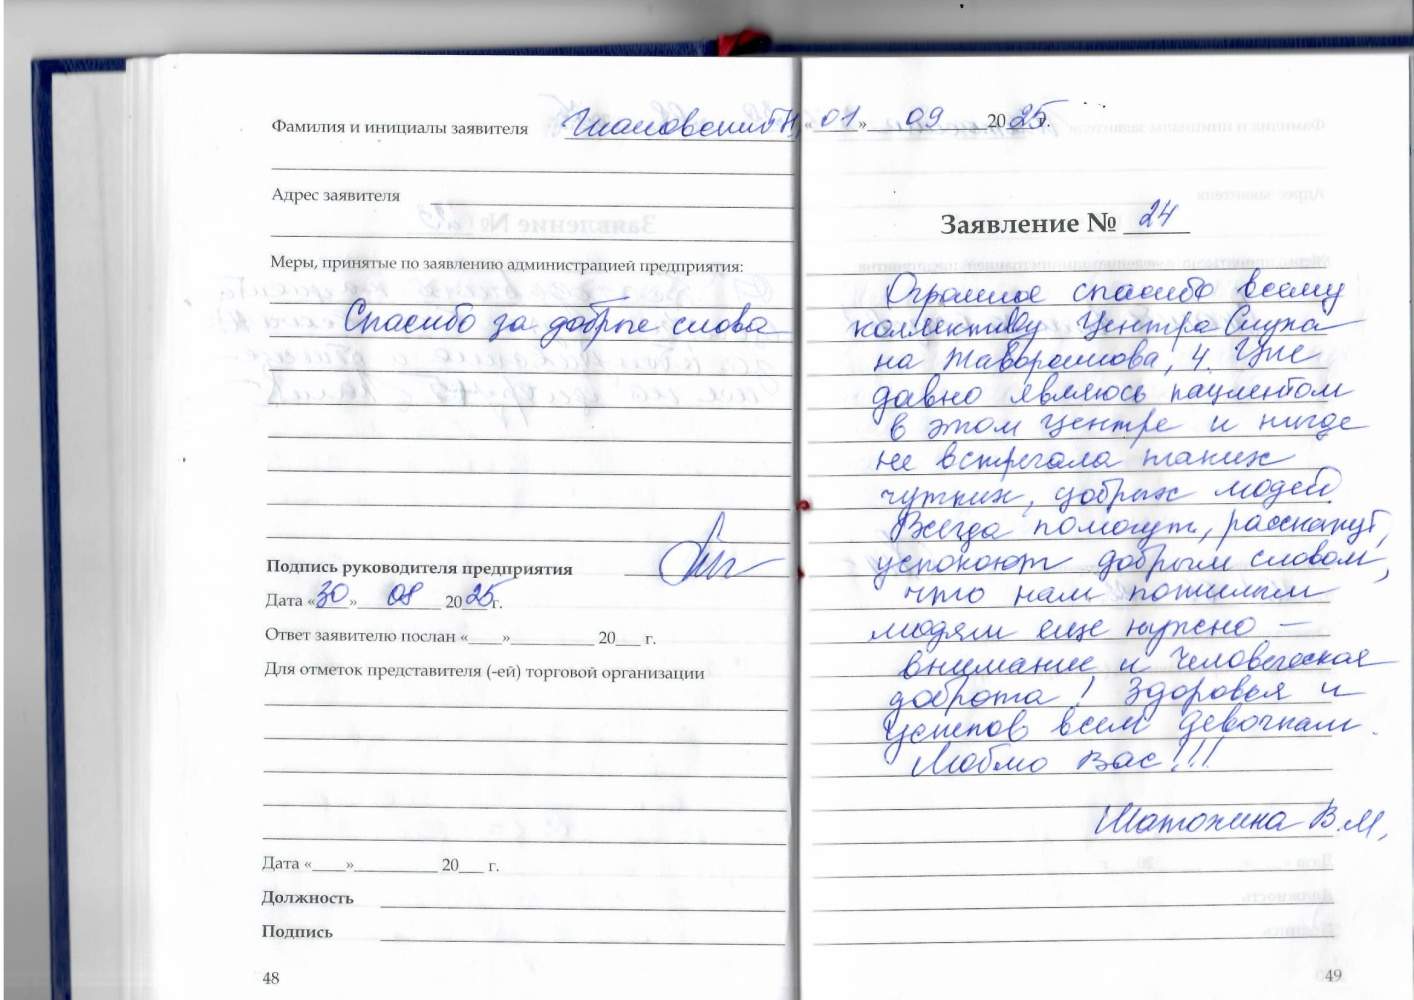 Фамилия и инициалы заявителя
Адрес заявителя
Меры, принятые по заявлению администрацией предприятия:
Спасибо за добрые слова
Подпись руководителя предприятия
Дата «30» 08 2025г.
Ответ заявителю послан «___»__________ 20___ г.
Для отметок представителя (-ей) торговой организации
Дата «____»__________ 20___ г.
Должность
Подпись
48
«01» 09 2025г.
Заявление № 24
Огромное спасибо всему
коллективу Центра Слуха
на Жаворонкова, 4. Уже
давно являюсь пациентом
в этом центре и нигде
не встречала таких
чутких, добрых людей
Всегда помогут, расскажут,
успокоют добрым словом,
что нам пожилым
людям еще нужно –
внимание и человеческая
доброта! Здоровья и
успехов всем девочкам.
Люблю Вас!!!
В.М.
49